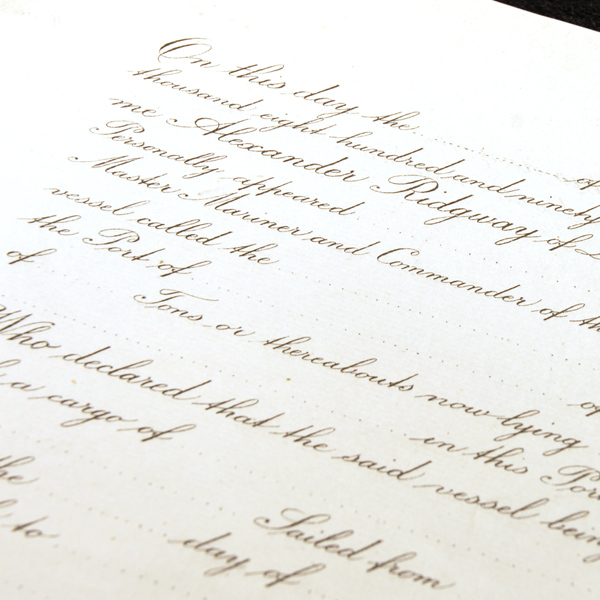 On this day the ............ of
thousand eight hundred and ninety
me Alexander Ridgway of
Personally appeared ............
Master Mariner and Commander of the
vessel called the ............
the Port of ............ of
of ............ Tons or thereabouts now lying
............ in this Port
Who declared that the said vessel being
a cargo of ............
the ............ Sailed from
to ............ day of ............